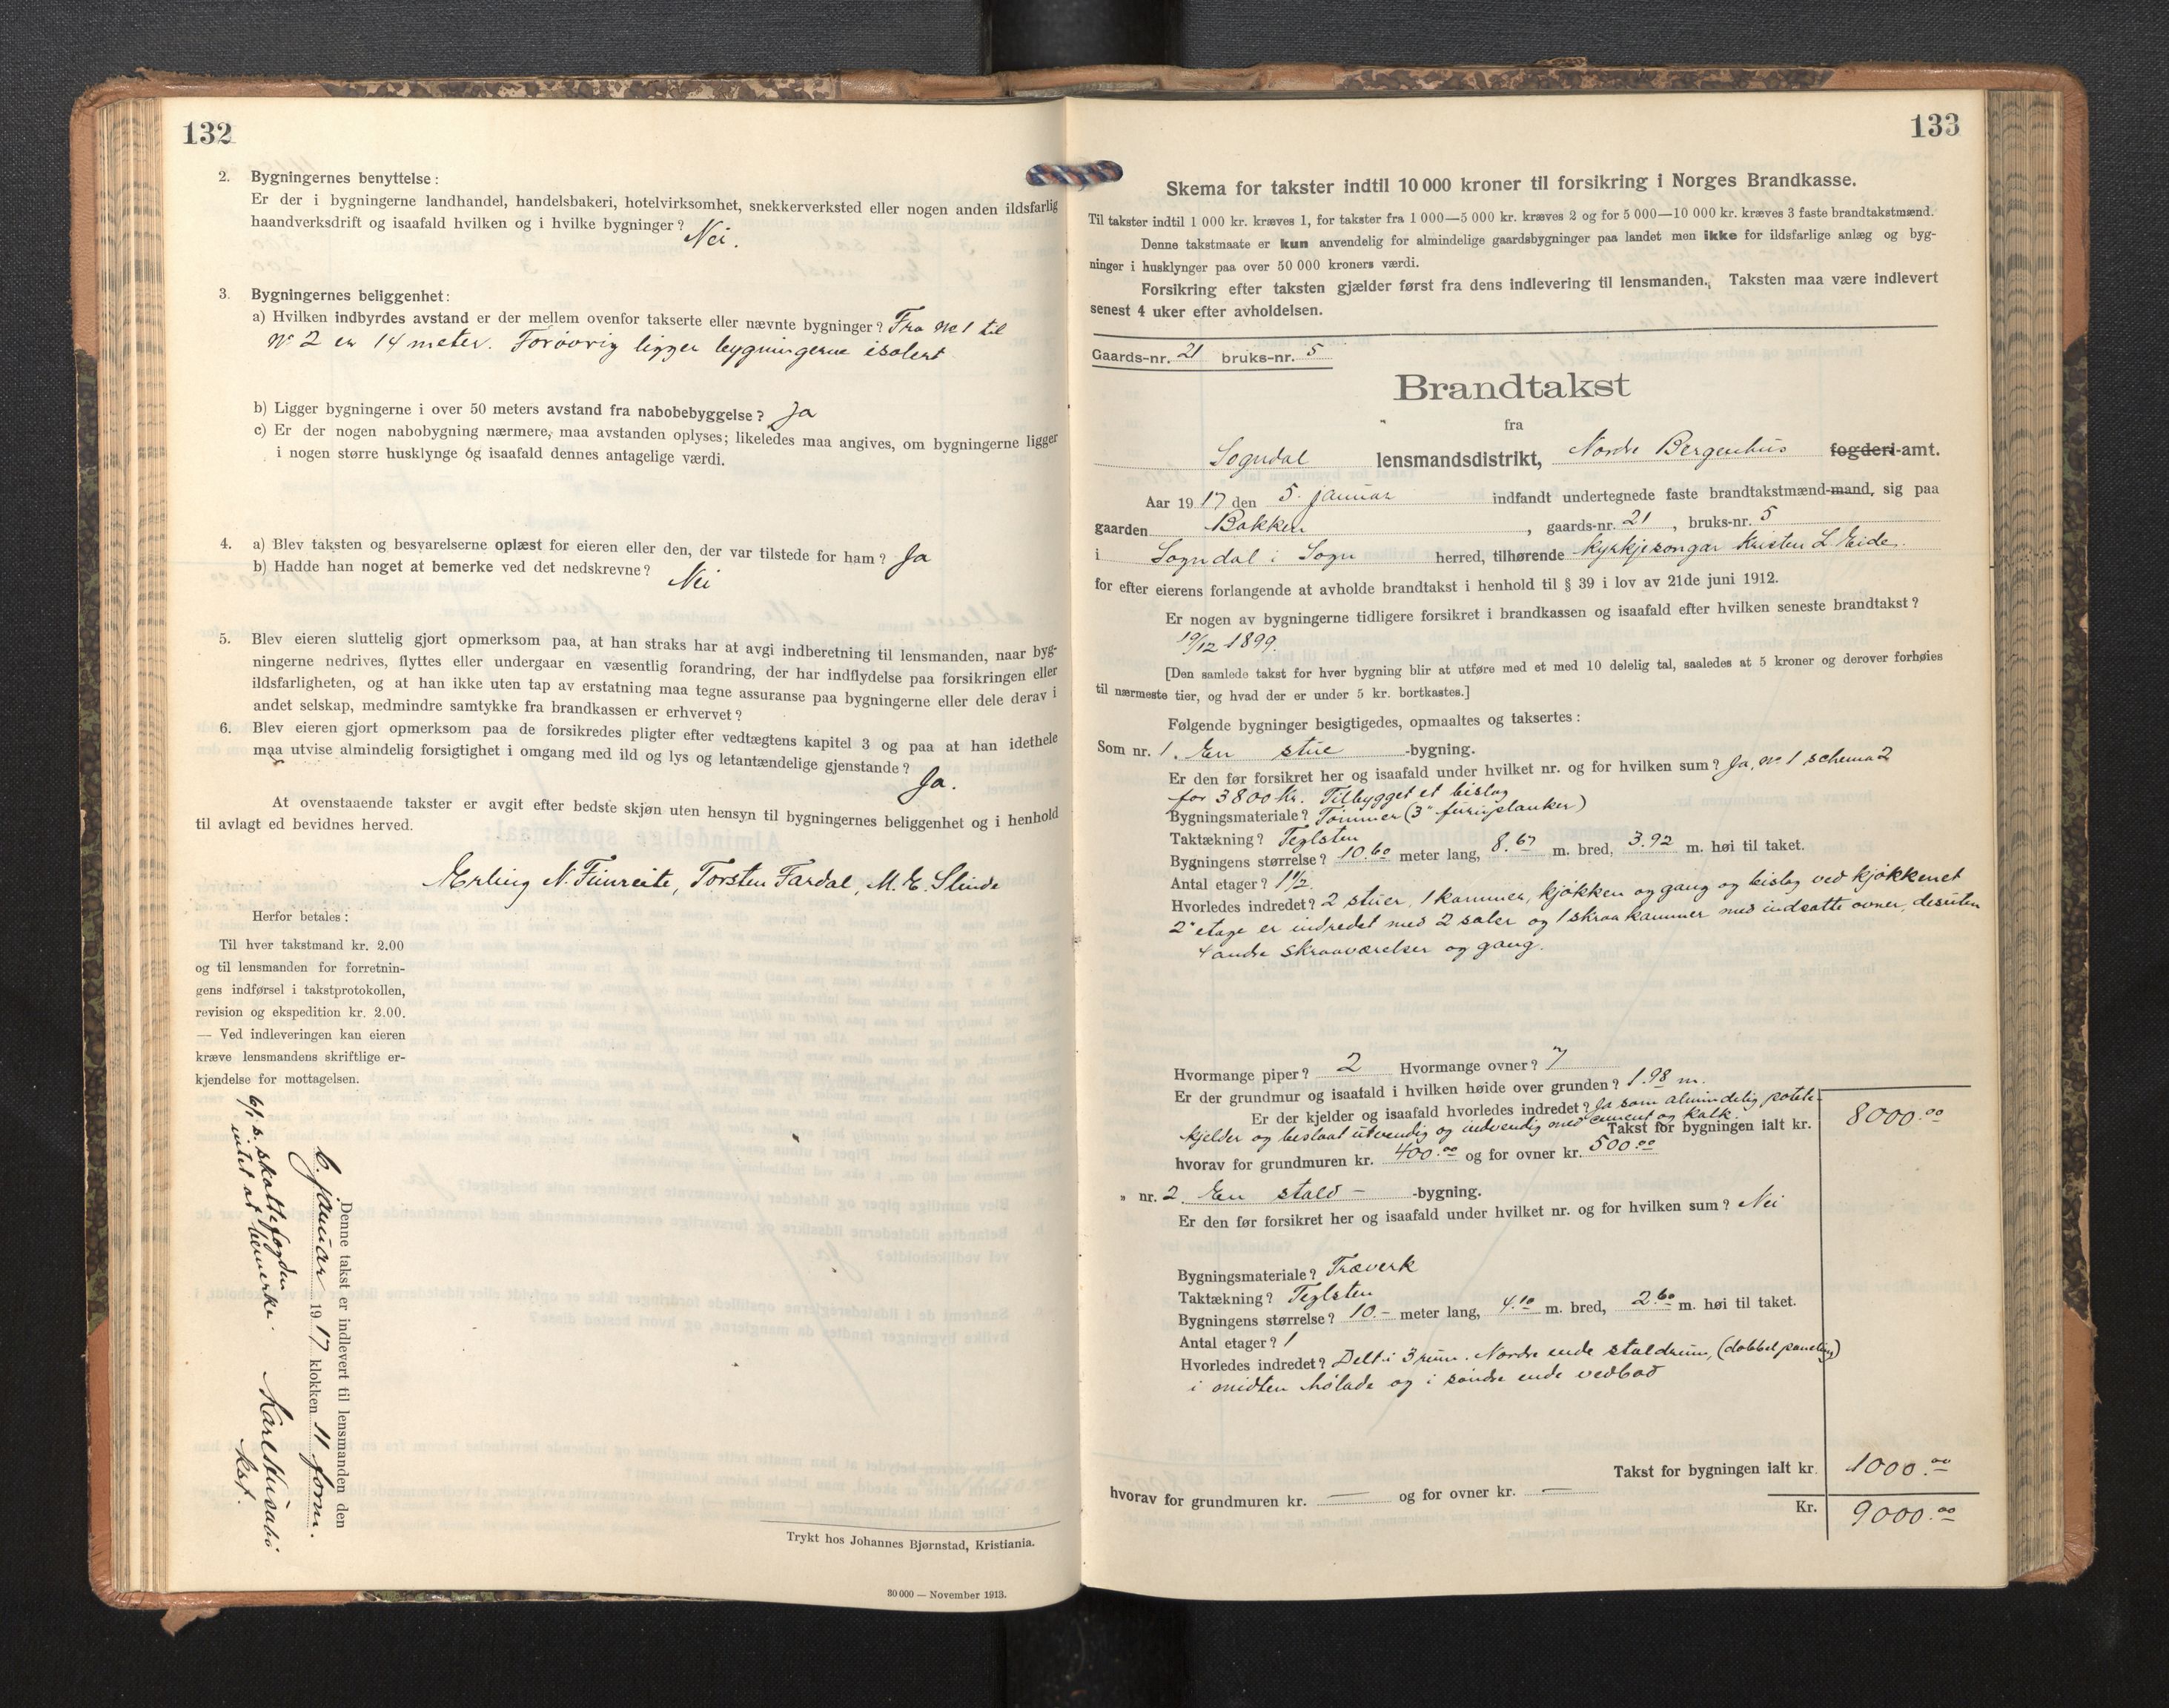 132
2. Bygningernes benyttelse:
Er der i bygningerne landhandel, handelsbakeri, hotelvirksomhet, snekkerverksted eller nogen anden ildsfarlig
haandverksdrift og isaafald hvilken og i hvilke bygninger? Nei.
3. Bygningernes beliggenhet:
a) Hvilken indbyrdes avstand er der mellem ovenfor takserte eller nævnte bygninger? Fra No 1 til
No 2 er 14 meter. Forøvrig ligger bygningerne isolert
b) Ligger bygningerne i over 50 meters avstand fra nabobebyggelse? Ja
c) Er der nogen nabobygning nærmere, maa avstanden oplyses; likeledes maa angives, om bygningerne ligger
i nogen større husklynge og isaafald dennes antagelige værdi.
4. a) Blev taksten og besvarelserne oplæst for eieren eller den, der var tilstede for ham? Ja
b) Hadde han noget at bemerke ved det nedskrevne? Nei
5. Blev eieren sluttelig gjort opmerksom paa, at han straks har at avgi indberetning til lensmanden, naar byg-
ningerne nedrives, flyttes eller undergaar en væsentlig forandring, der har indflydelse paa forsikringen eller
ildsfarligheten, og at han ikke uten tap av erstatning maa tegne assuranse paa bygningerne eller dele derav i
andet selskap, medmindre samtykke fra brandkassen er erhvervet?
6. Blev eieren gjort opmerksom paa de forsikredes pligter efter vedtægtens kapitel 3 og paa at han idethele
maa utvise almindelig forsigtighet i omgang med ild og lys og letantændelige gjenstande?
Ja.
At ovenstaaende takster er avgit efter bedste skjøn uten hensyn til bygningernes beliggenhet og i henhold
til avlagt ed bevidnes herved.
Erling N. Fimreite, Torsten Fardal, M. E. Slinde
Herfor betales:
Til hver takstmand kr. 2.00
og til lensmanden for forretnin-
gens indførsel i takstprotokollen,
revision og ekspedition kr. 2.00.
— Ved indleveringen kan eieren
kræve lensmandens skriftlige er-
kjendelse for mottagelsen.
Denne takst er indlevert til lensmanden den
6. januar 1917 klokken 11 form.
6/1 s. skattefogden
intet at bemerke. Karl Husabø
kst.
Trykt hos Johannes Bjørnstad, Kristiania.
30 000 — November 1913.
133
Skema for takster indtil 10 000 kroner til forsikring i Norges Brandkasse.
Til takster indtil 1 000 kr. kræves 1, for takster fra 1 000—5 000 kr. kræves 2 og for 5 000—10 000 kr. kræves 3 faste brandtakstmænd.
Denne takstmaate er kun anvendelig for almindelige gaardsbygninger paa landet men ikke for ildsfarlige anlæg og byg-
ninger i husklynger paa over 50 000 kroners værdi.
Forsikring efter taksten gjælder først fra dens indlevering til lensmanden. Taksten maa være indlevert
senest 4 uker efter avholdelsen.
Gaards-nr. 21 bruks-nr. 5
Brandtakst
fra
Sogndal lensmandsdistrikt, Nordre Bergenhus fogderi-amt.
Aar 1917 den 5. januar indfandt undertegnede faste brandtakstmænd-mand, sig paa
gaarden Bakken, gaards-nr. 21, bruks-nr. 5
i Sogndal i Sogn herred, tilhørende kyrkjesongar Kristen L. Eide.
for efter eierens forlangende at avholde brandtakst i henhold til § 39 i lov av 21de juni 1912.
Er nogen av bygningerne tidligere forsikret i brandkassen og isaafald efter hvilken seneste brandtakst?
19/12 1899.
[Den samlede takst for hver bygning blir at utføre med et med 10 delelig tal, saaledes at 5 kroner og derover forhøies
til nærmeste tier, og hvad der er under 5 kr. bortkastes.]
Følgende bygninger besigtigedes, opmaaltes og taksertes:
Som nr. 1. En stue -bygning.
Er den før forsikret her og isaafald under hvilket nr. og for hvilken sum? Ja, No 1 schema 2
for 3800 Kr. Tilbygget et bislag
Bygningsmateriale? Tømmer (3" furuplanker)
Taktækning? Teglsten
Bygningens størrelse? 10.60 meter lang, 8.67 m. bred, 3.92 m. høi til taket.
Antal etager? 1 1/2.
Hvorledes indredet? 2 stuer, 1 kammer, kjøkken og gang og bislag ved kjøkkenet
2. etage er indredet med 2 saler og 1 skraakammer med indsatte ovner, desuten
4 andre skraaværelser og gang.
Hvormange piper? 2 Hvormange ovner? 7
Er der grundmur og isaafald i hvilken høide over grunden? 1.98 m.
Er der kjelder og isaafald hvorledes indredet? Ja som almindelig potet-
kjelder og beslaat utvendig og indvendig med cement og kalk.
Takst for bygningen ialt kr. 8000.00
hvorav for grundmuren kr. 400.00 og for ovner kr. 500.00
" nr. 2. En stald - -bygning.
Er den før forsikret her og isaafald under hvilket nr. og for hvilken sum? Nei
Bygningsmateriale? Træverk
Taktækning? Teglsten
Bygningens størrelse? 10.- meter lang, 4.10 m. bred, 2.60 m. høi til taket.
Antal etager? 1
Hvorledes indredet? Delt i 3 rum. Nordre ende staldrum, (dobbel paneling)
i midten hølade og i søndre ende vedbod
Takst for bygningen ialt kr. 1000.00
hvorav for grundmuren kr. — og for ovner kr. —
Kr. 9000.00